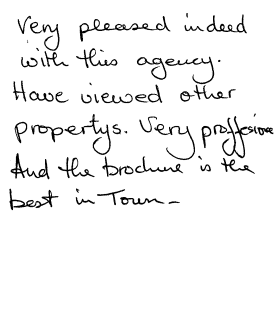 Very pleased indeed
with this agency.
Have viewed other
propertys. Very proffesione
And the brochure is the
best in Town -